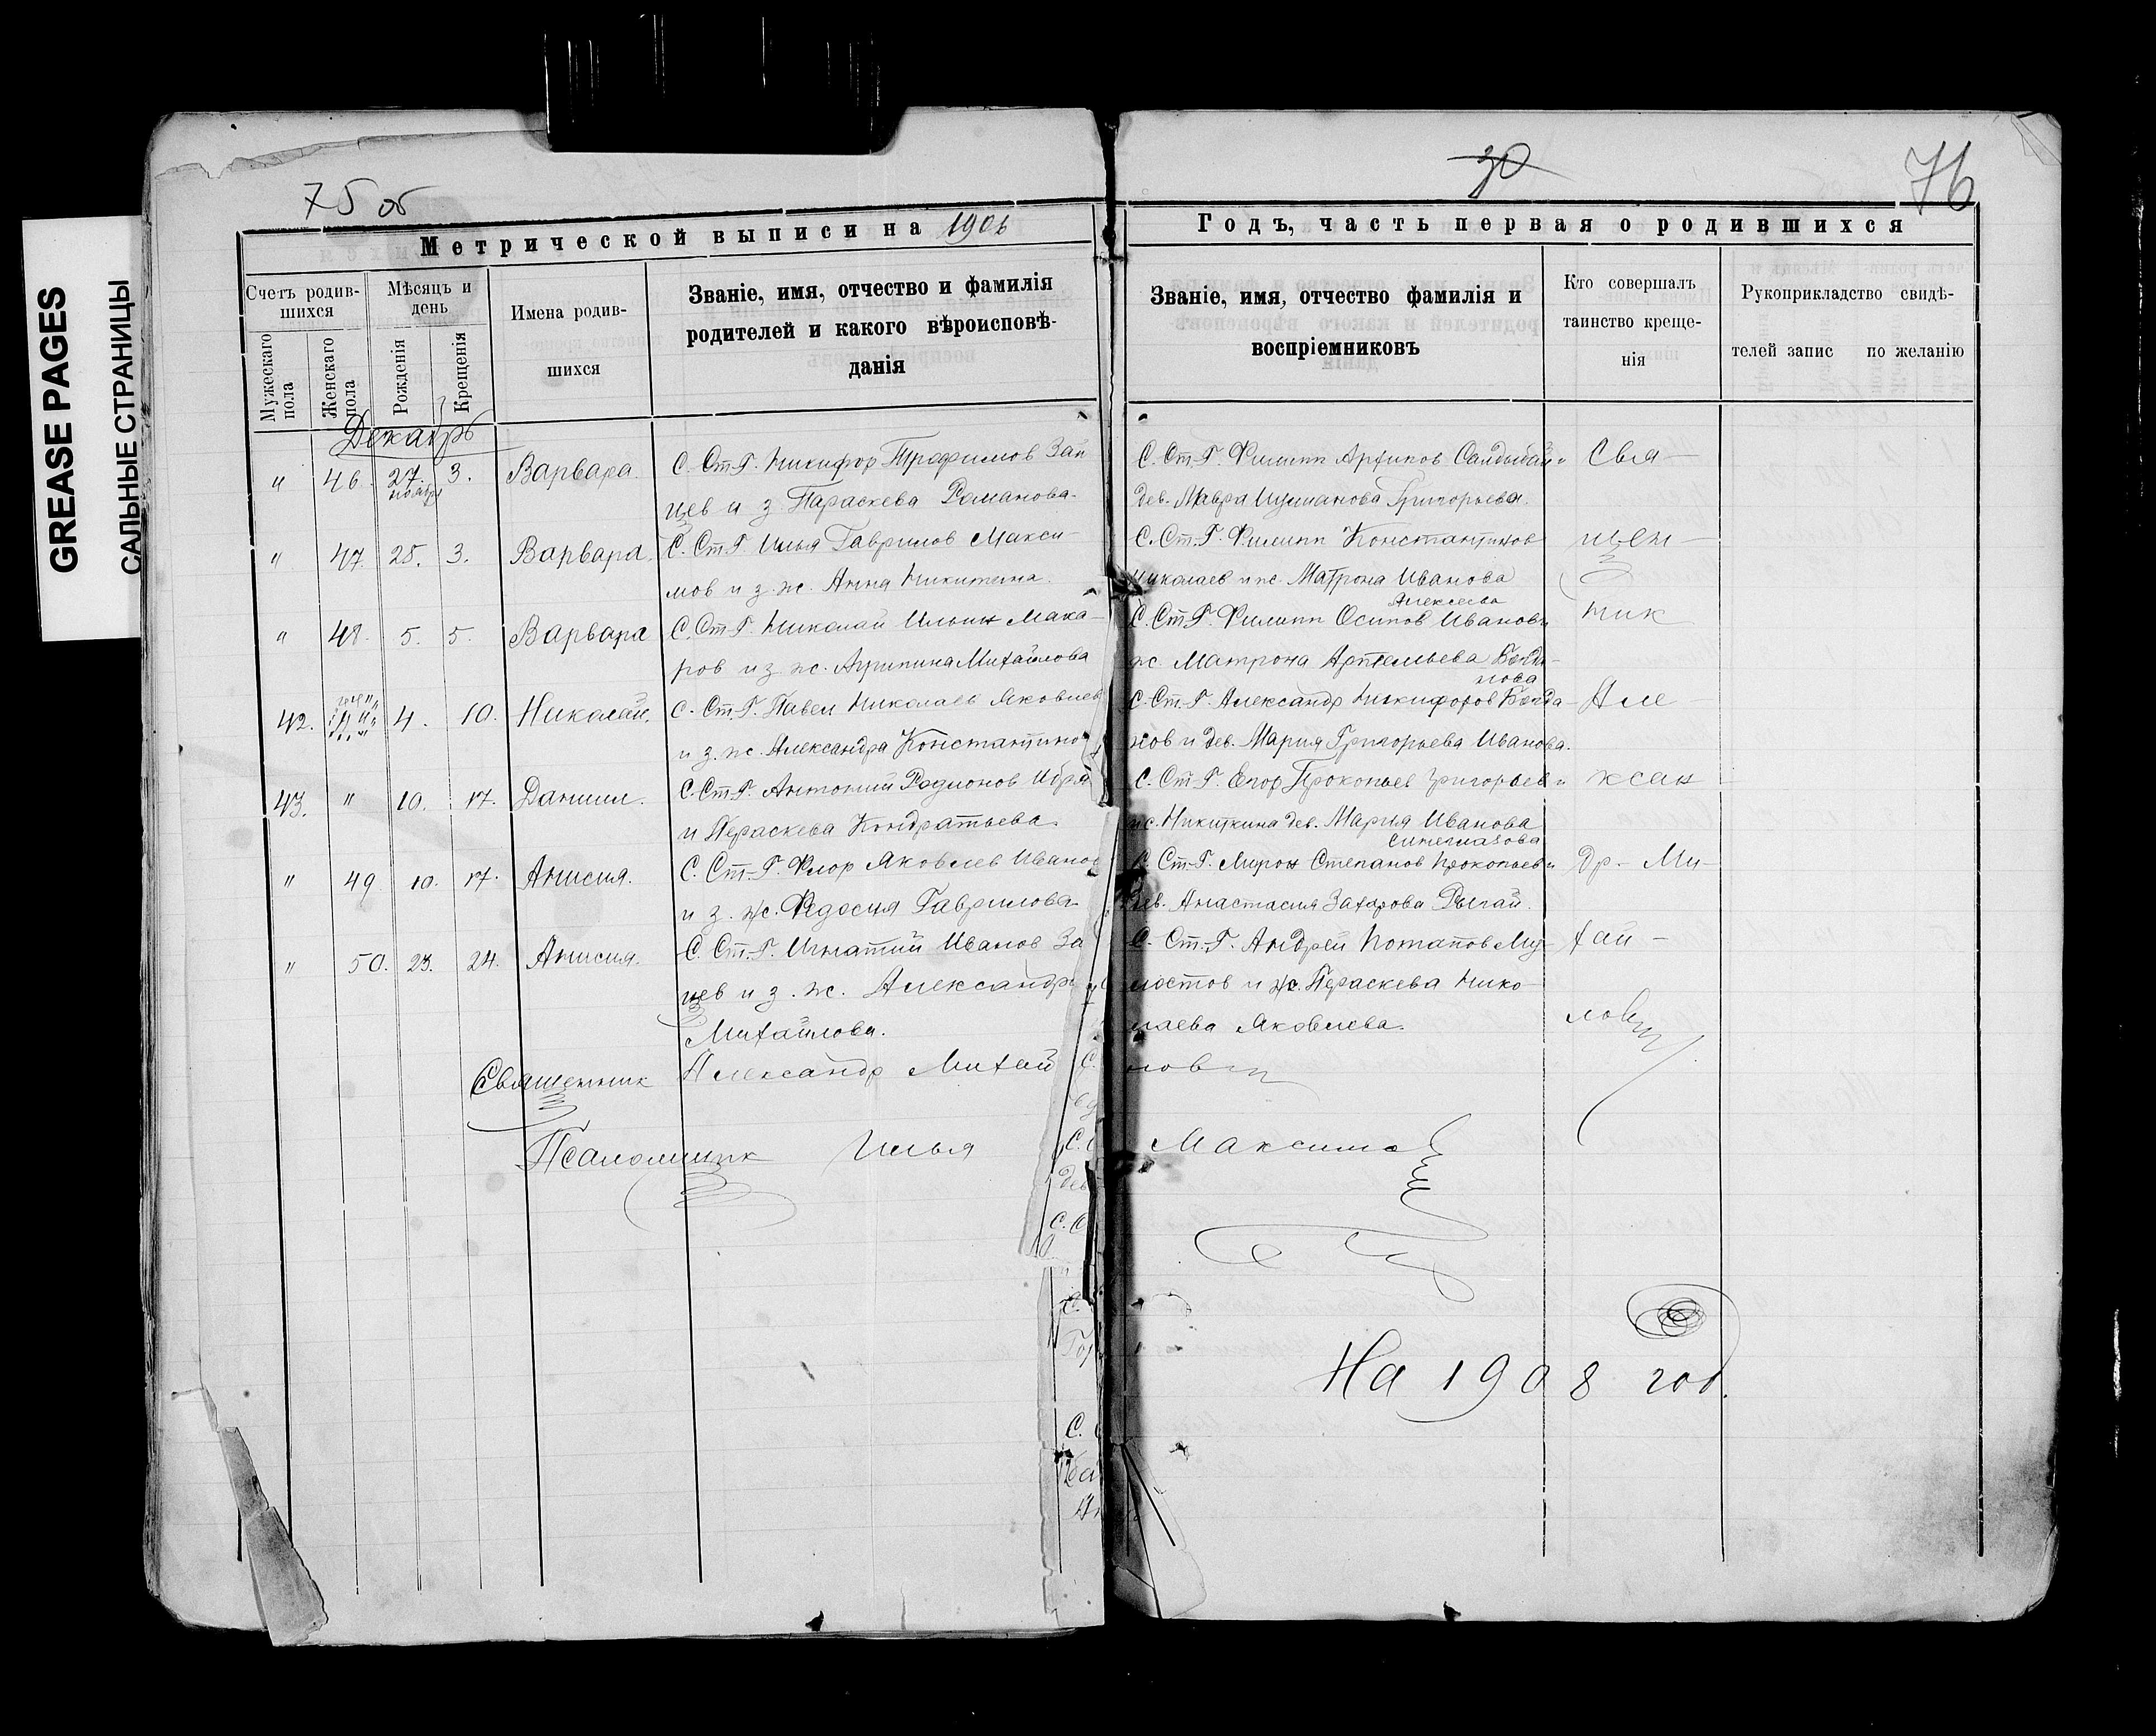 GREASE PAGES
САЛЬНЫЕ СТРАНИЦЫ
75 об
Метрической выписи на 1906
Счетъ родив-
шихся
Мѣсяцъ и
день
Имена родив-
шихся
Званіе, имя, отчество и фамилія
родителей и какого вѣроисповѣ-
данія
Мужескаго
пола
Женскаго
пола
Рожденія
Крещенія
Декабрь
" 46. 27. 3. Варвара. С. Ст. Г. Никифор Трофимов Зай
ноября
цев и з. Параскева Романова.
" 47. 25. 3. Варвара. С. Ст. Г. Илья Гаврилов Макси-
мов и з. ж. Анна Никитина.
" 48. 5. 5. Варвара С. Ст. Г. Николай Ильин Мака-
ров и з. ж. Агрипина Михайлова
42. 4. 10. Николай. С. Ст. Г. Павел Николаев Яковлев
и з. ж. Александра Константино
43. " 10. 17. Даниил. С. Ст. Г. Антоний Родионов
и Параскева Кондратьева.
" 49. 10. 17. Анисия. С. Ст. Г. Флор Яковлев Иванов
и з. ж. Федосия Гаврилова
" 50. 23. 24. Анисия. С. Ст. Г. Игнатий Иванов За
цев и з. ж. Александр
Михайлова.
Священник Александр Михай
Псаломщик Илья
30
76
Годъ, часть первая о родившихся
Званіе, имя, отчество фамилія и
воспріемниковъ
Кто совершалъ
таинство креще-
нія
Рукоприкладство свидѣ-
телей запис по желанію
С. Ст. Г. Филипп Архипов и Свя-
дев. Мавра Григорьева.
С. Ст. Г. Филипп Константинов щен-
Николаев и ж. Матрона Иванова
Алексеева
С. Ст. Г. Филипп Осипов Иванов и ник
ж. Матрона Артемьева Богда-
нова
С. Ст. Г. Александр Никифоров Богда- Але-
нов и дев. Мария Григорьева Иванова.
С. Ст. Г. Егор Прокопьев Григорьев и ксан
ж. Никиткина дев. Мария Иванова
Синеглазова
С. Ст. Г. Мирон Степанов Прокопьев и др.- Ми-
дев. Анастасия Захарова
С. Ст. Г. Андрей Потапов хай-
и ж. Параскева Нико-
лаева Яковлева. лов
лов
Максимов
На 1908 год.